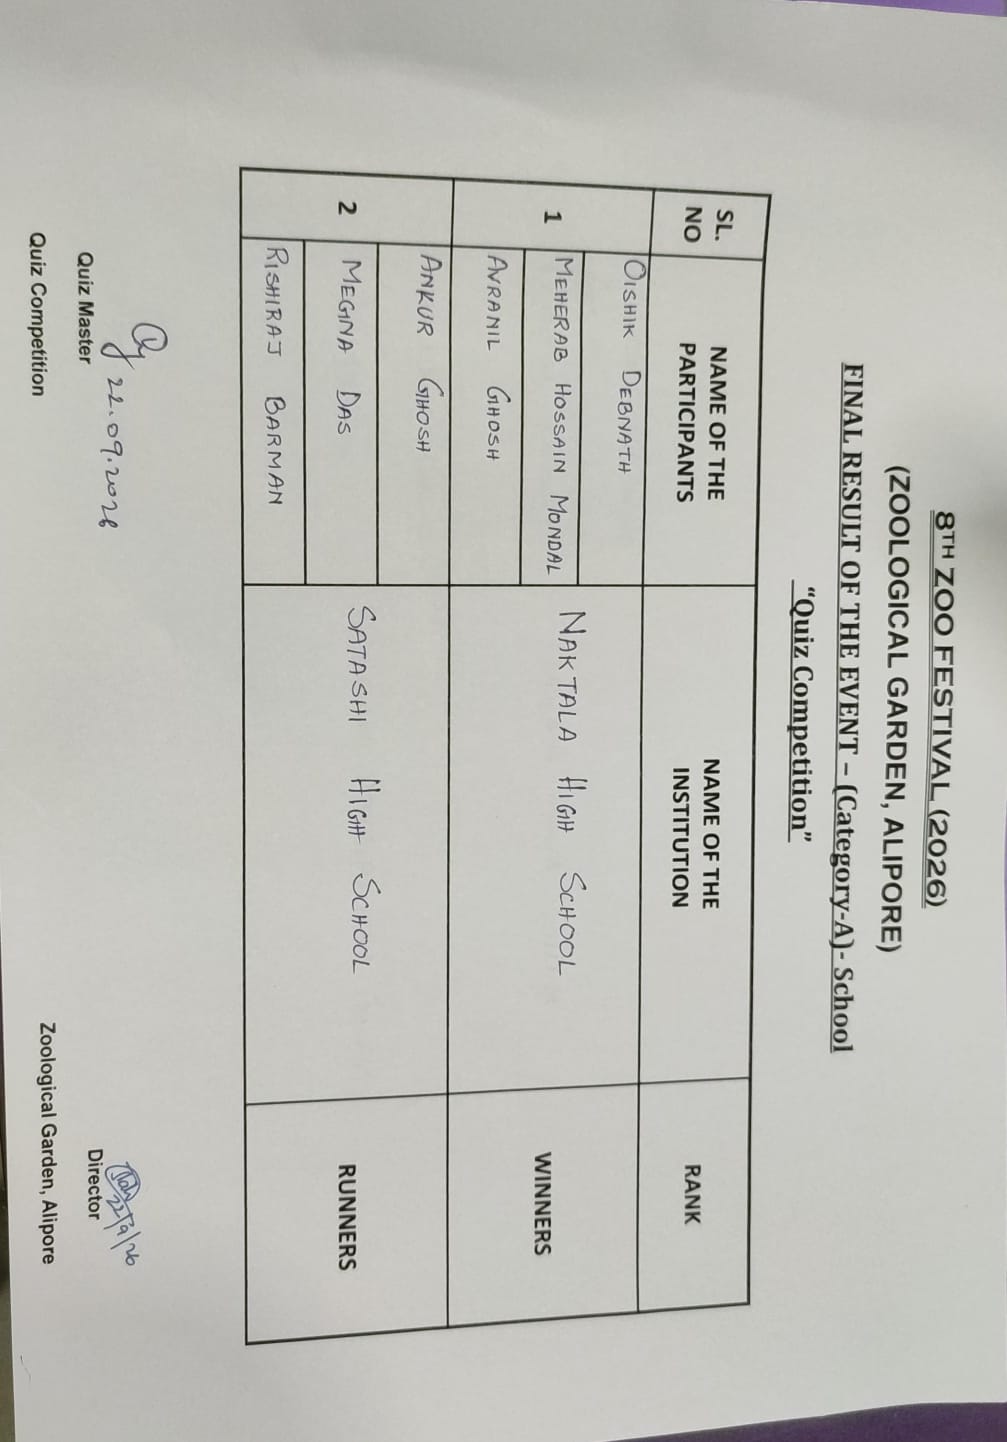 8TH ZOO FESTIVAL (2026)
(ZOOLOGICAL GARDEN, ALIPORE)
FINAL RESULT OF THE EVENT – (Category-A)- School
“Quiz Competition”
SL. NO
NAME OF THE PARTICIPANTS
NAME OF THE INSTITUTION
RANK
1
OISHIK DEBNATH
MEHERAB HOSSAIN MONDAL
AVRANIL GHOSH
NAKTALA HIGH SCHOOL
WINNERS
2
ANKUR GHOSH
MEGNA DAS
RISHIRAJ BARMAN
SATASHI HIGH SCHOOL
RUNNERS
22.09.2026
Quiz Master
Quiz Competition
22/9/26
Director
Zoological Garden, Alipore